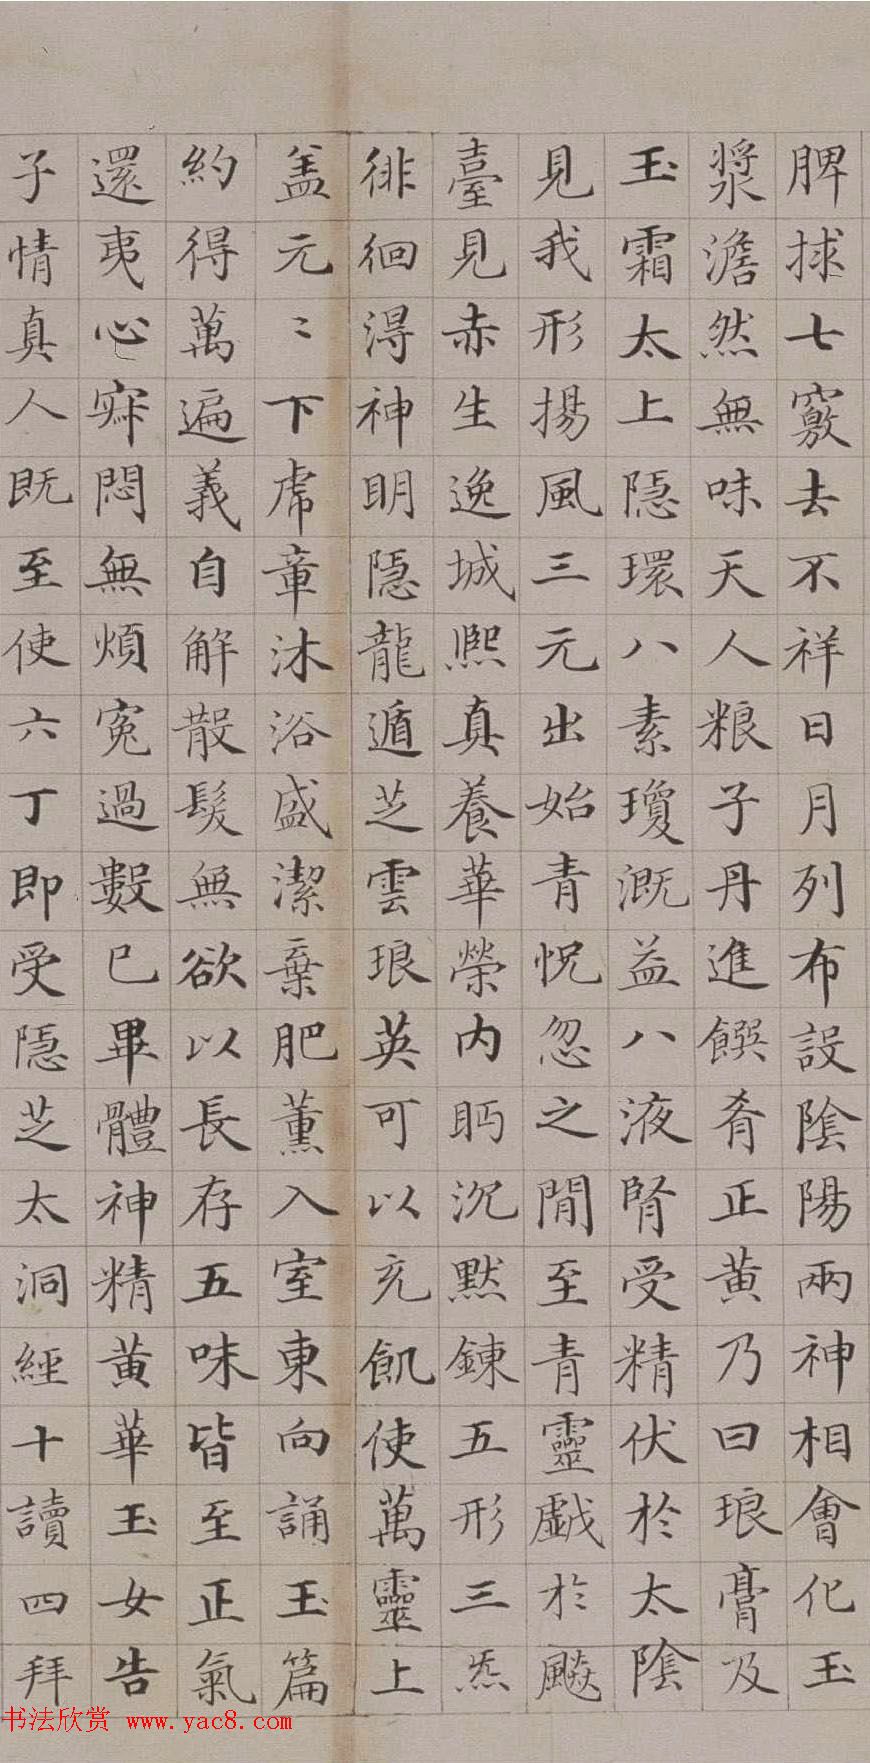 脾捄七竅去不祥日月列布設陰陽兩神相會化玉
漿澹然無味天人粮子丹進饌肴正黄乃曰琅膏及
玉霜太上隠環八素瓊溉益八液腎受精伏於太陰
見我形揚風三元出始青怳忽之間至青靈戱於飈
臺見赤生逸城熙真養華榮内眄沉默錬五形三炁
徘徊淂神明隠龍遁芝雲琅英可以充飢使萬靈上
盖元〻下虎章沐浴盛潔棄肥薫入室東向誦玉篇
約得萬遍義自解散髮無欲以長存五味皆至正氣
還夷心寂悶無煩寃過數已畢體神精黄華玉女告
子情真人既至使六丁即受隠芝太洞經十讀四拜
书法欣赏 www.yac8.com